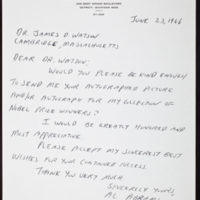 2648 WEST GRAND BOULEVARD
DETROIT, MICHIGAN 48208
JUNE 23, 1966
DR. JAMES D. WATSON
CAMBRIDGE, MASSACHUSETTS
DEAR DR. WATSON:
WOULD YOU PLEASE BE KIND ENOUGH
TO SEND ME YOUR AUTOGRAPHED PICTURE
AND/OR AUTOGRAPH FOR MY COLLECTION OF
NOBEL PRIZE WINNERS?
I WOULD BE GREATLY HONORED AND
MOST APPRECIATIVE.
PLEASE ACCEPT MY SINCEREST BEST
WISHES FOR YOUR CONTINUED SUCCESS.
THANK YOU VERY MUCH.
SINCERELY YOURS,
AL ABRAMS